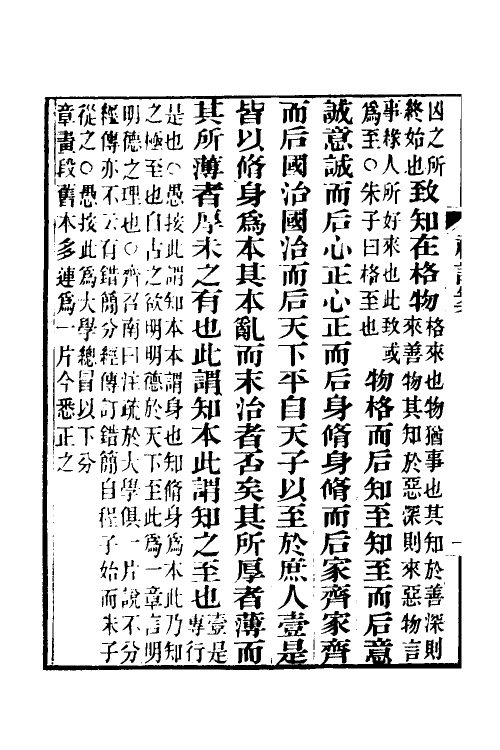 因之所
終始也
致知在格物
格來也物猶事也其知於善深則
來善物其知於惡深則來惡物言
事緣人所好來也此致或
爲至○朱子曰格至也
物格而后知至知至而后意
誠意誠而后心正心正而后身脩身脩而后家齊家齊
而后國治國治而后天下平自天子以至於庶人壹是
皆以脩身爲本其本亂而末治者否矣其所厚者薄而
其所薄者厚未之有也此謂知本此謂知之至也
壹是
專行
是也○愚按此謂知本本謂身也知脩身爲本此乃知
之極至也自古之欲明明德於天下至此爲一章言明
明德之理也○齊召南曰注疏於大學俱一片說不分
經傳亦不云有錯簡分經傳訂錯簡自程子始而朱子
從之○愚按此爲大學總冒以下分
章畫段舊本多連爲一片今悉正之